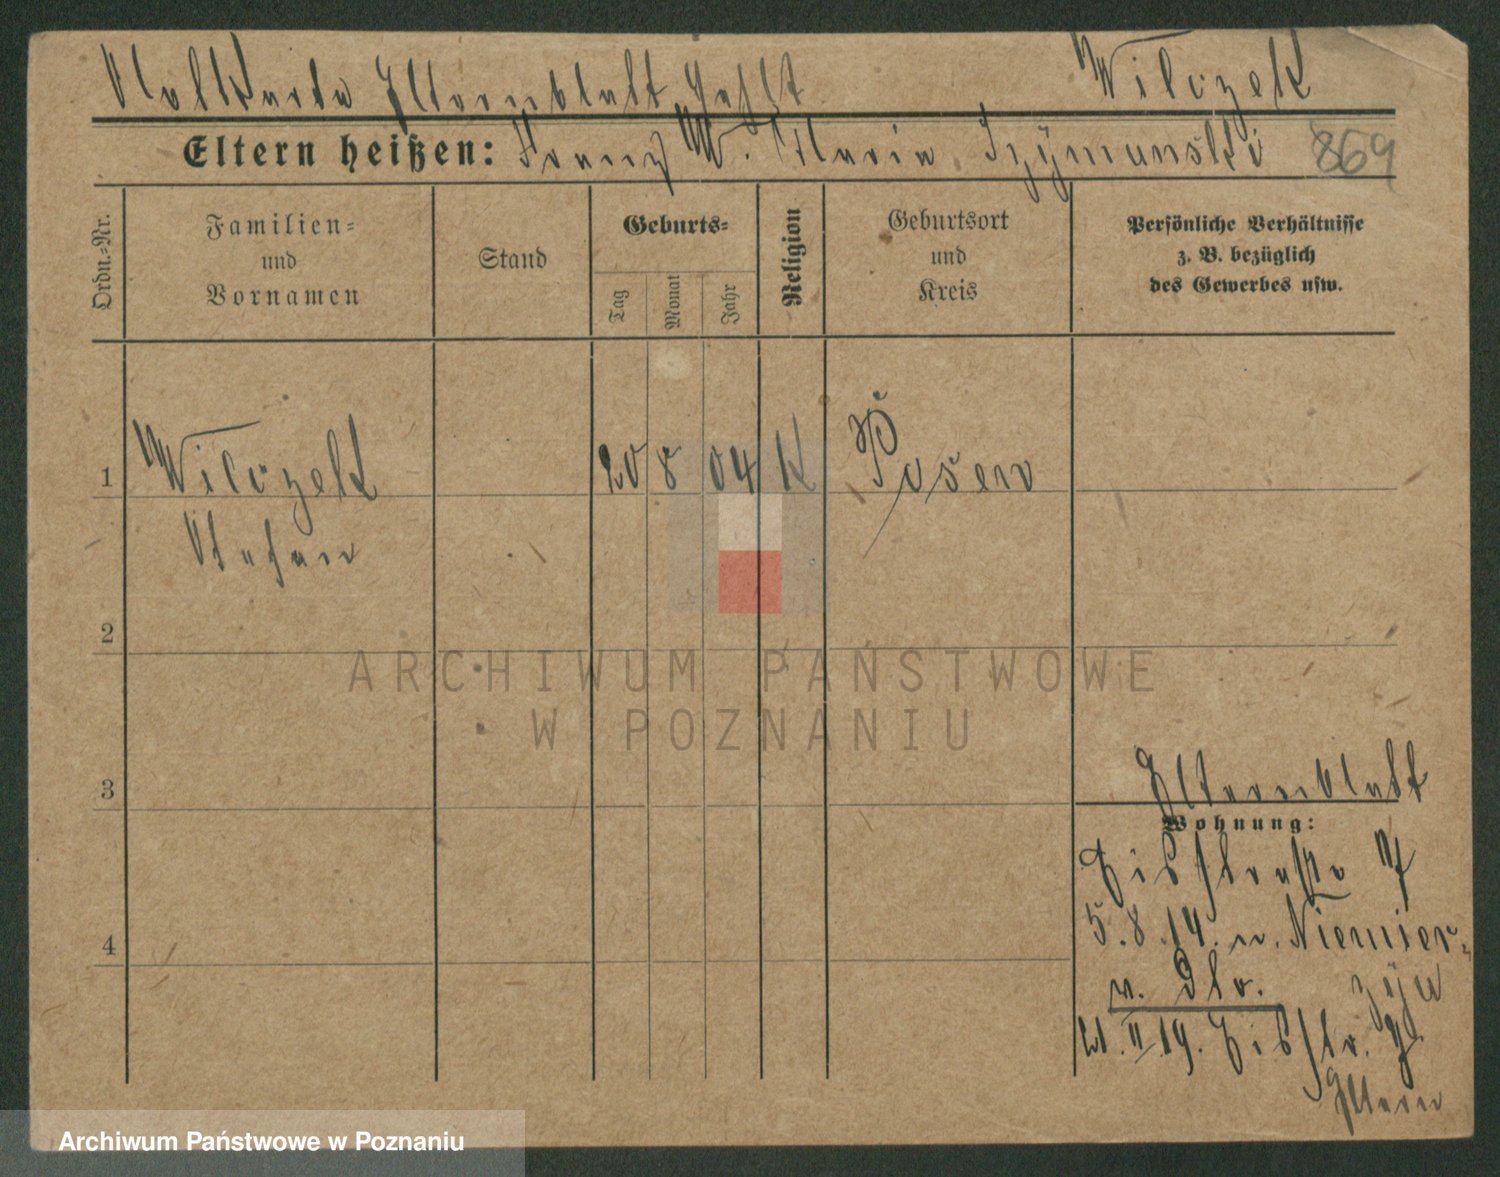 Vollkarte Elternblatt fehlt Wilczek
Eltern heißen: Franz W. Maria Szymanski 869
Ordn.-Nr.
Familien- und Vornamen
Stand
Geburts-
Tag Monat Jahr
Religion
Geburtsort und Kreis
Persönliche Verhältnisse
z. B. bezüglich
des Gewerbes usw.
1 Wilczek 20 8 04 K Posen
Stefan
2
ARCHIWUM PAŃSTWOWE
W POZNANIU
3
Elternblatt
Wohnung:
5.8.14. n. Niemier-
4
v. Str. 
21.II.19.
Eltern
Archiwum Państwowe w Poznaniu